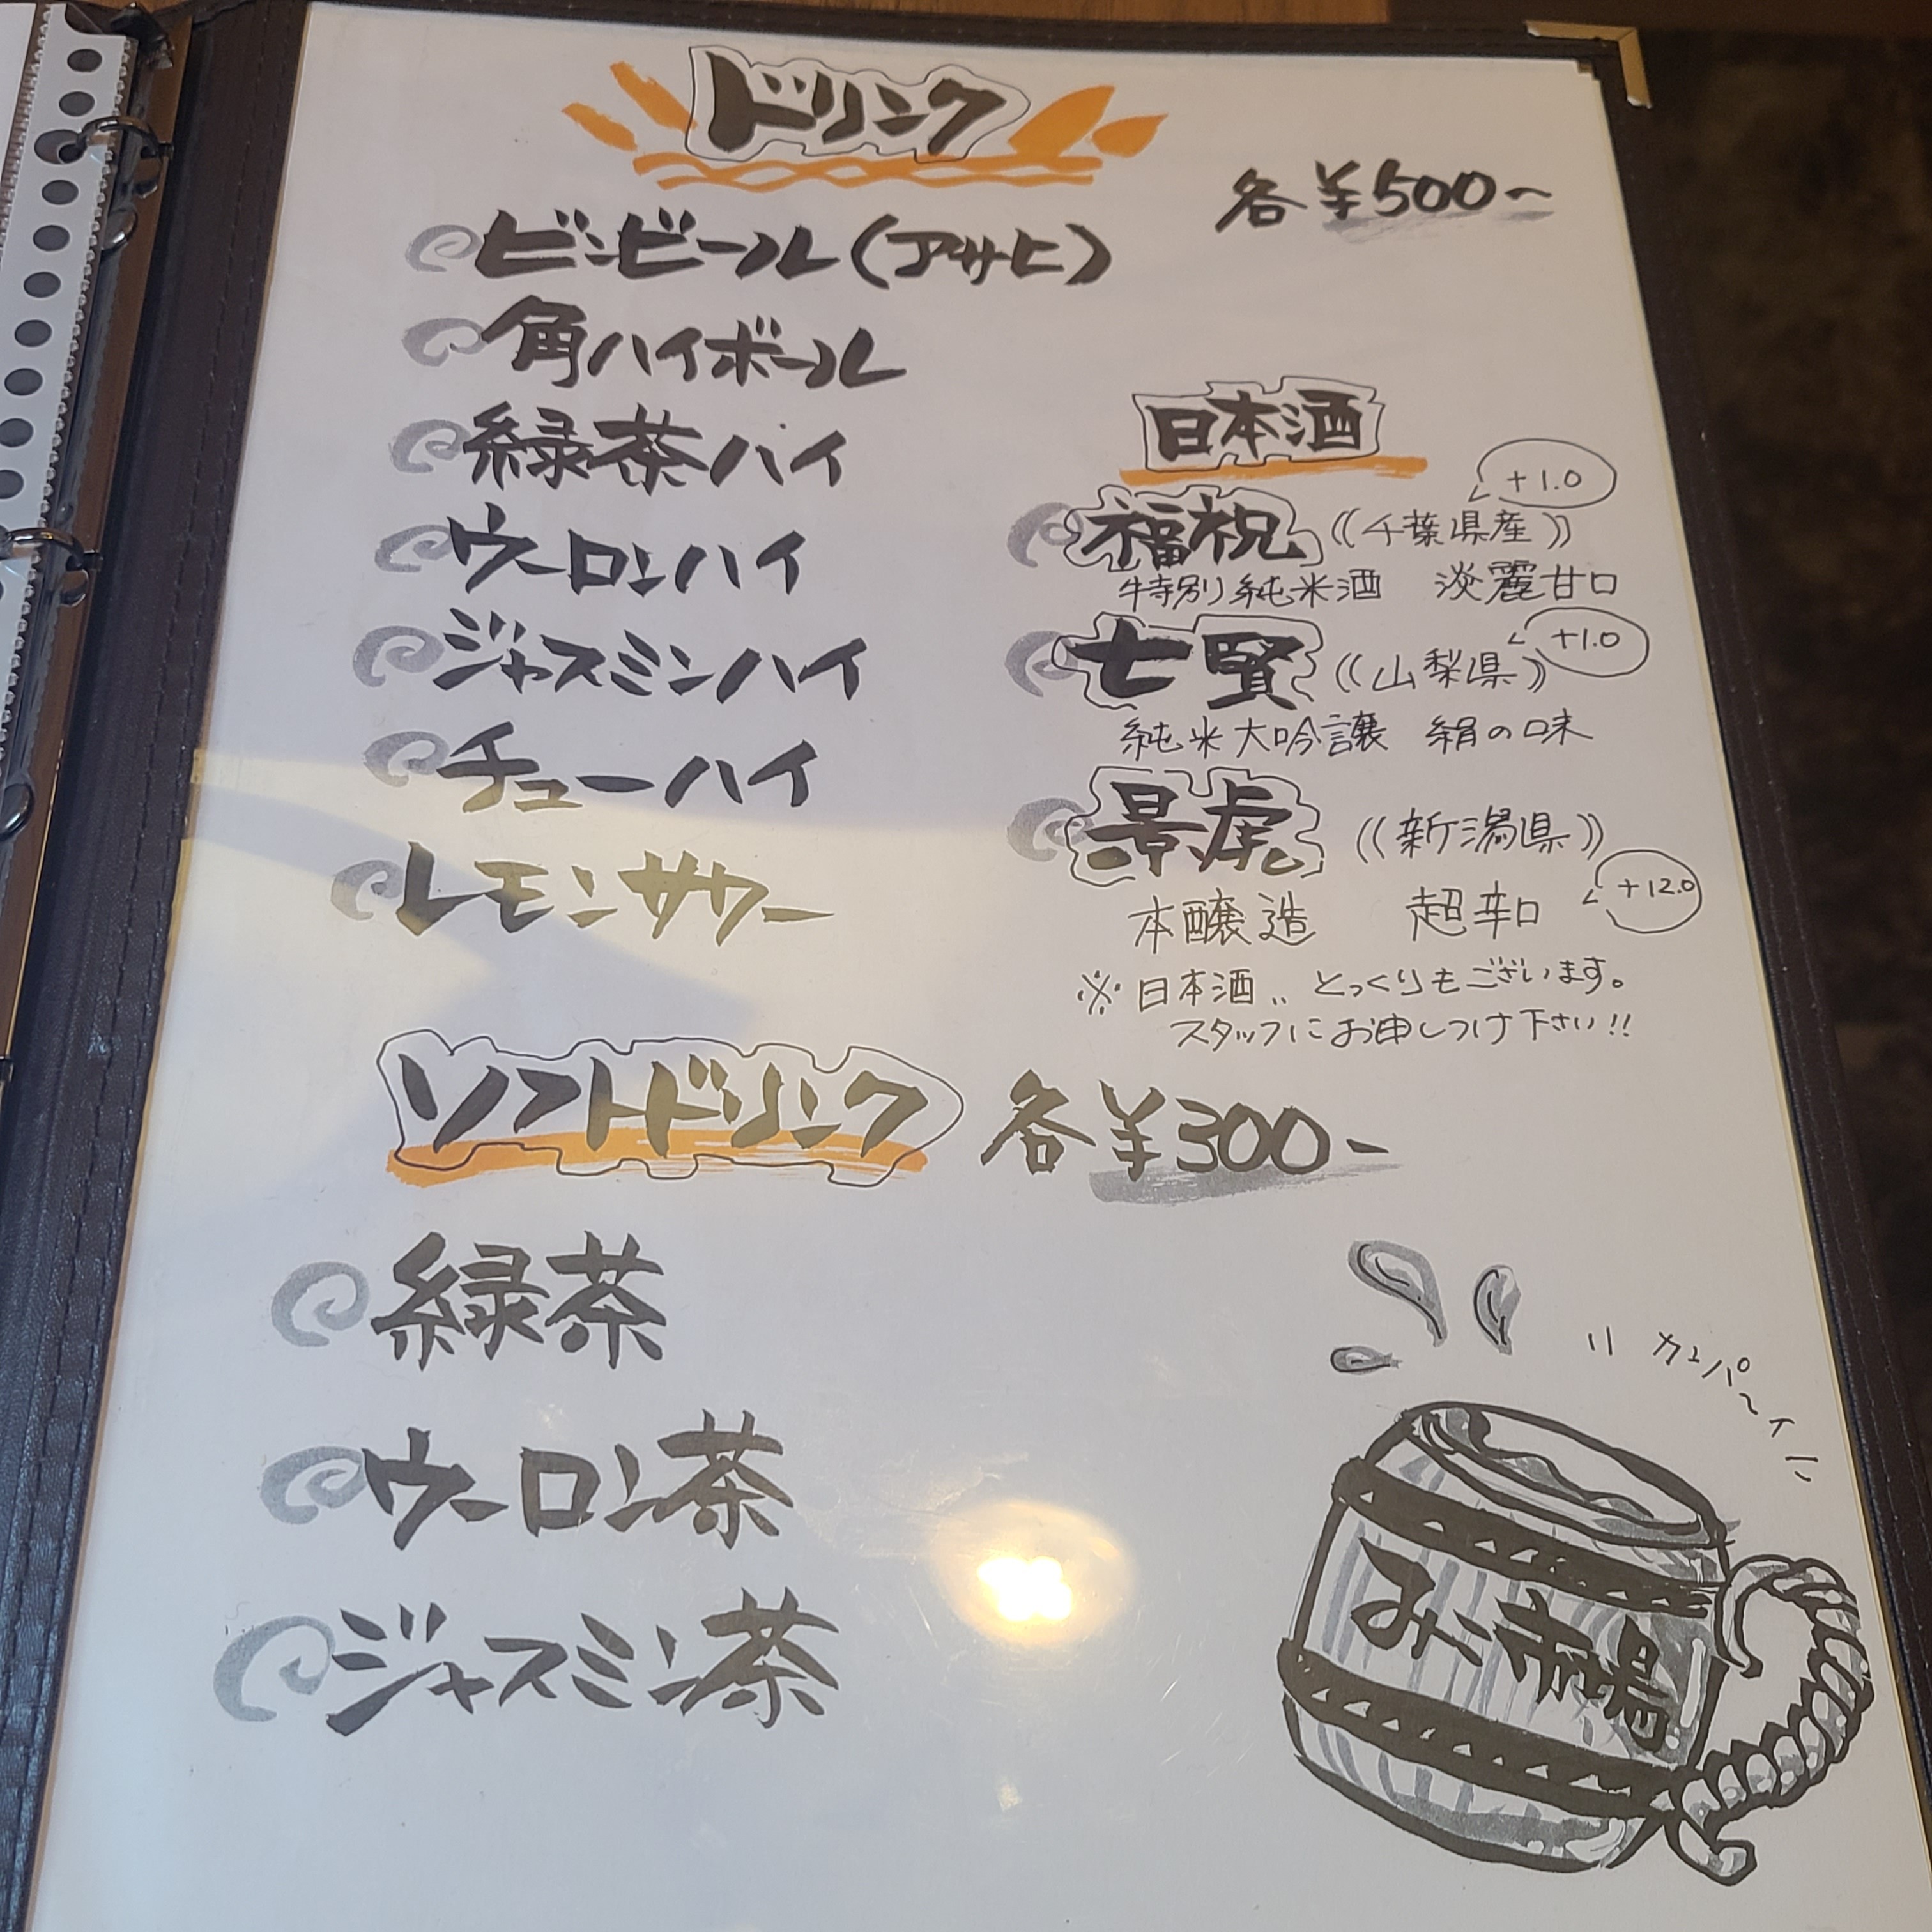 ドリンク
各¥500~
ビンビール(アサヒ)
角ハイボール
緑茶ハイ
ウーロンハイ
ジャスミンハイ
チューハイ
レモンサワー
日本酒
+1.0
福祝 《千葉県産》
特別純米酒 淡麗甘口
+1.0
七賢 《山梨県》
純米大吟醸 絹の味
景虎 《新潟県》
本醸造 超辛口
+12.0
※日本酒、、とっくりもございます。
スタッフにお申しつけ下さい!!
ソフトドリンク 各¥300-
緑茶
ウーロン茶
ジャスミン茶
カンパーイ
市場